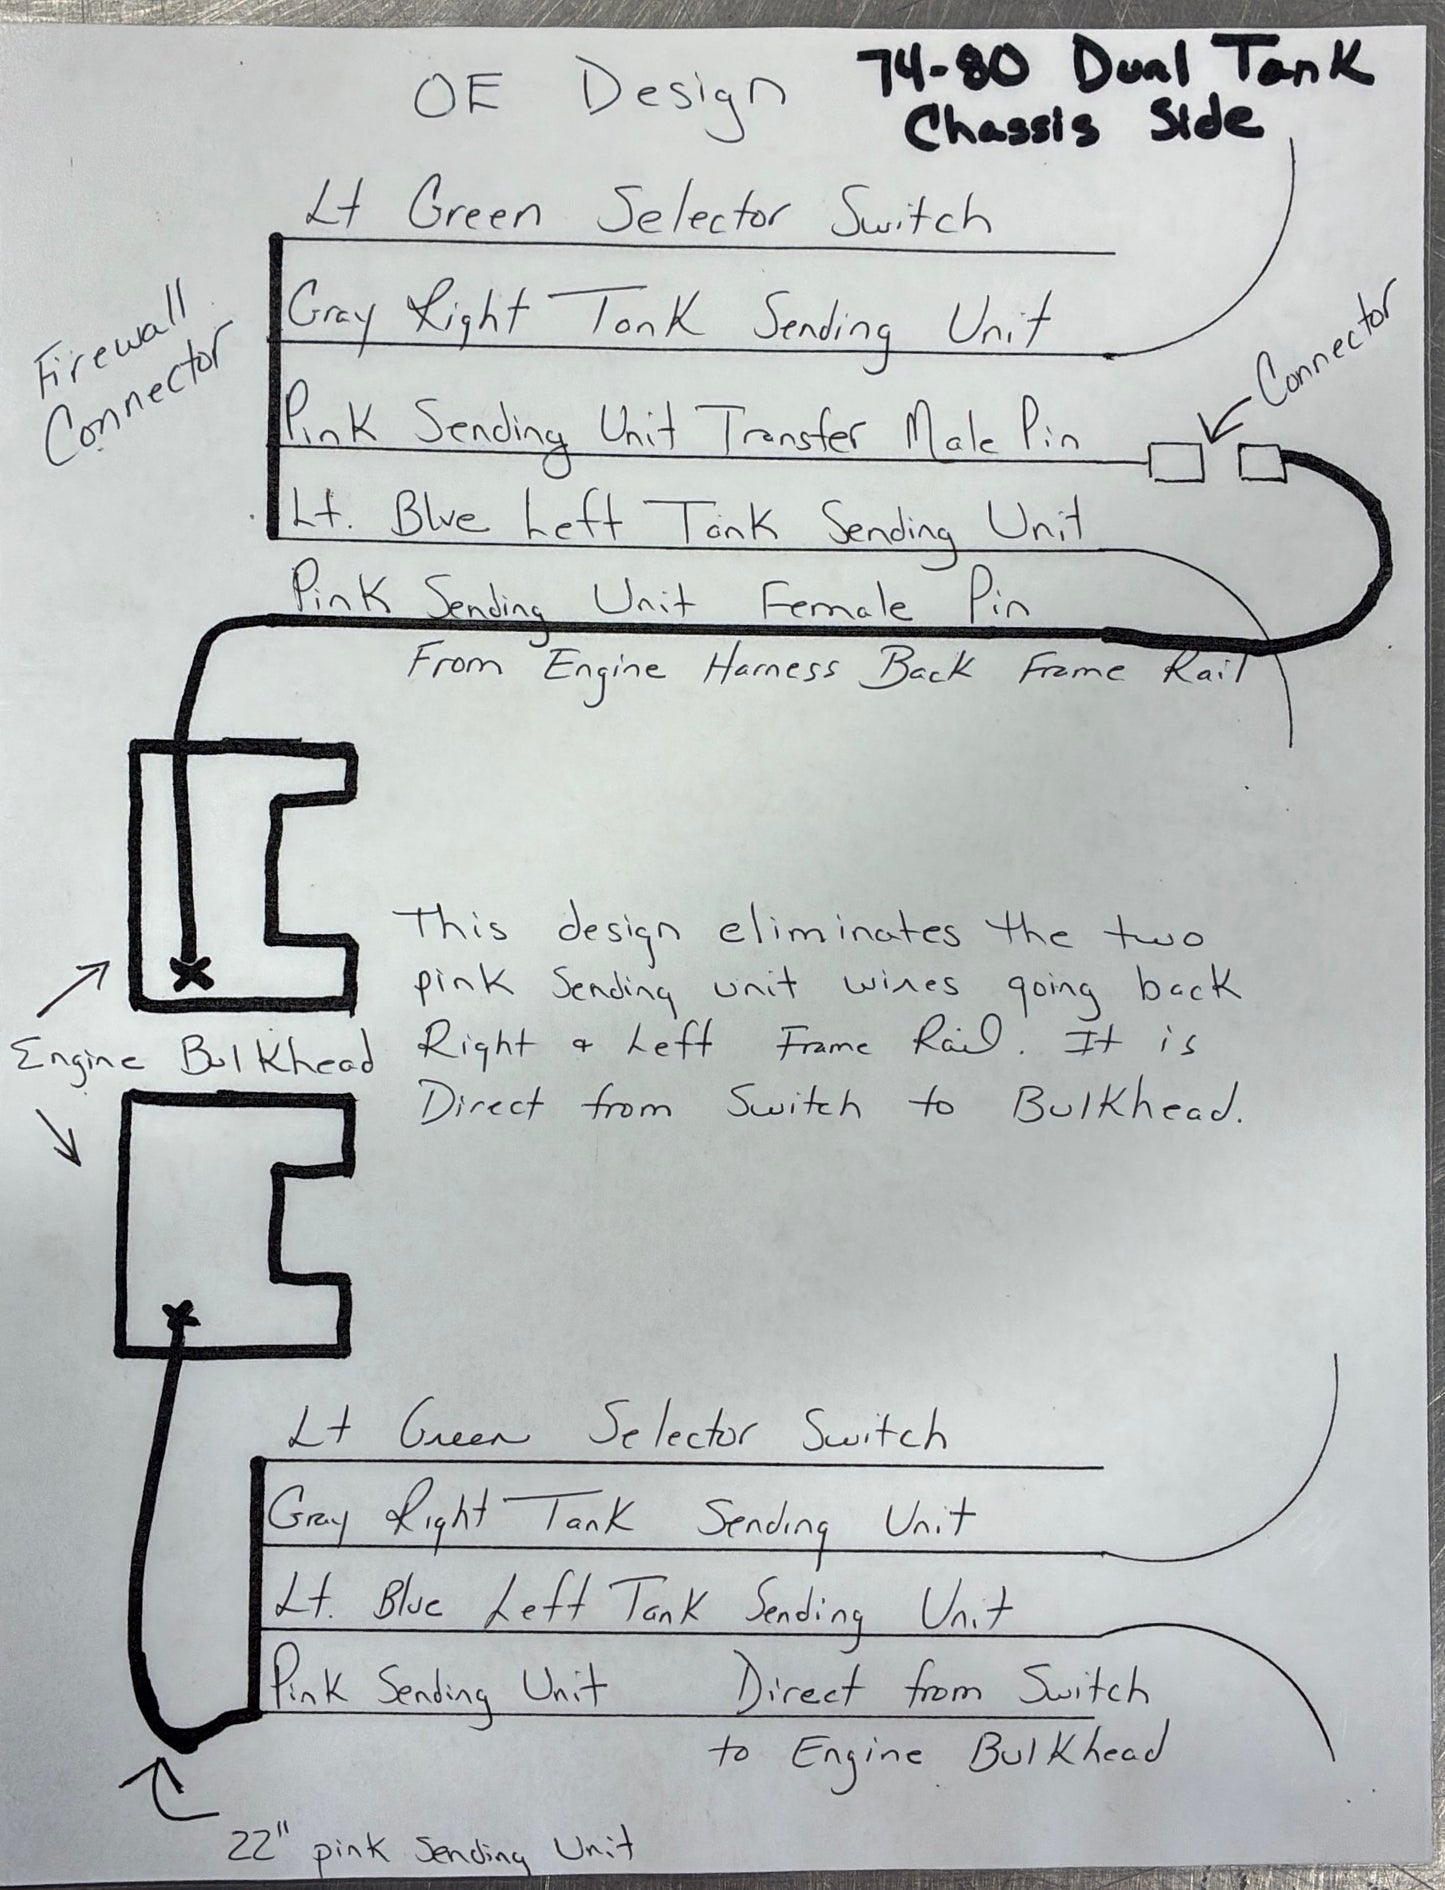 OE Design
74-80 Dual Tank
Chassis Side
Lt Green Selector Switch
Gray Right Tank Sending Unit
Firewall
Connector
Connector
Pink Sending Unit Transfer Male Pin
Lt. Blue Left Tank Sending Unit
Pink Sending Unit Female Pin
From Engine Harness Back Frame Rail
This design eliminates the two
pink sending unit wires going back
Right & Left Frame Rail. It is
Direct from Switch to Bulkhead.
Engine Bulkhead
Lt Green Selector Switch
Gray Right Tank Sending Unit
Lt. Blue Left Tank Sending Unit
Pink Sending Unit Direct from Switch
to Engine Bulkhead
22" pink sending Unit